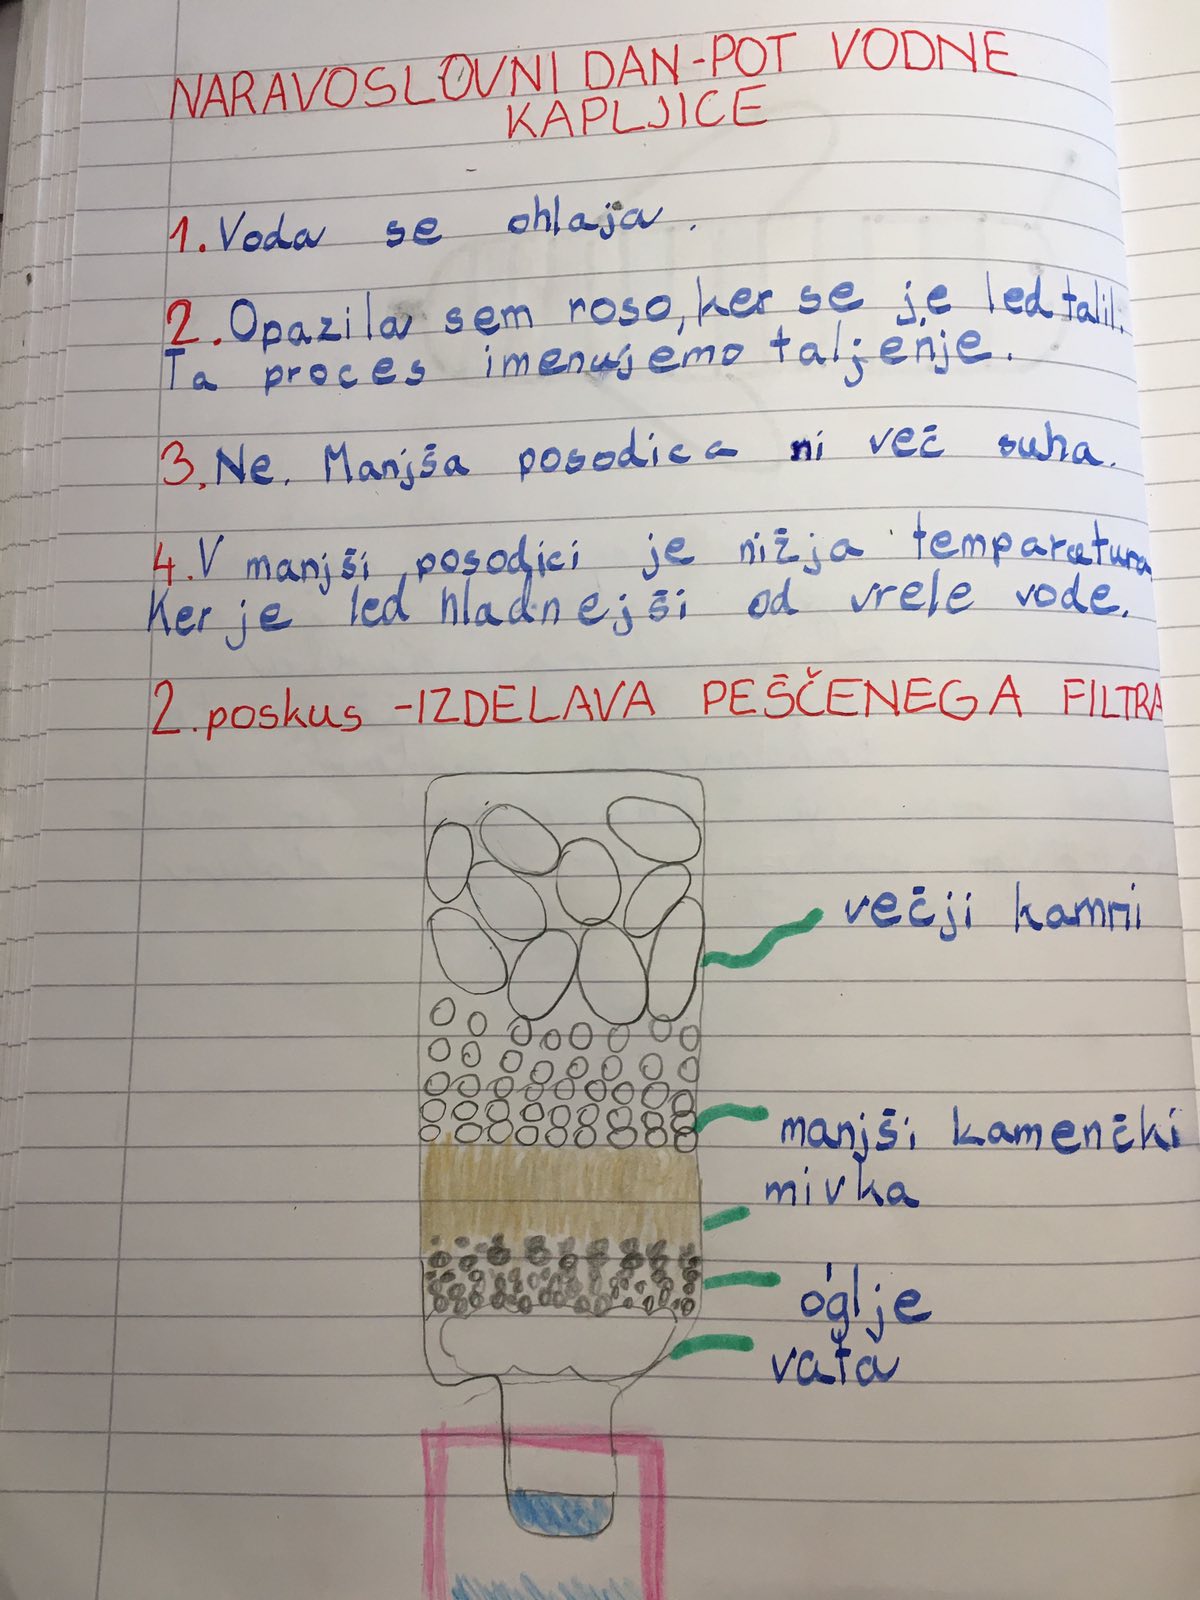 NARAVOSLOVNI DAN-POT VODNE
KAPLJICE
1. Voda se ohlaja.
2. Opazila sem roso, ker se je led talil.
Ta proces imenujemo taljenje.
3. Ne. Manjša posodica ni več suha.
4. V manjši posodici je nižja temparatura
Ker je led hladnejši od vrele vode.
2. poskus -IZDELAVA PEŠČENEGA FILTRA
večji kamni
manjši kamenčki
mivka
oglje
vata